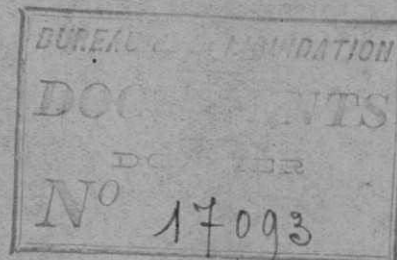 BUREAU LIQUIDATION
DOCUMENTS
DOSSIER
Nº 17093